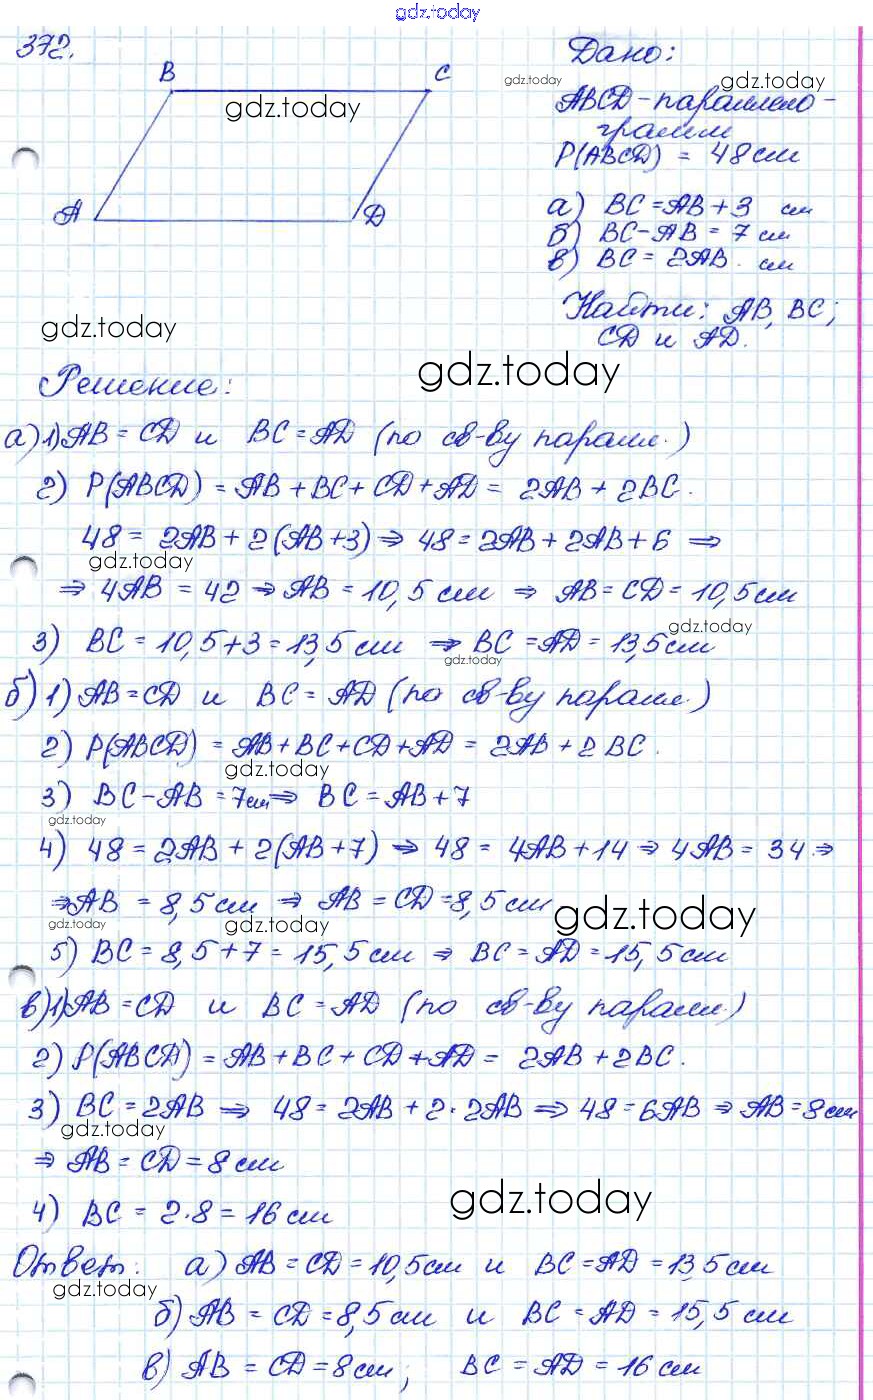 gdz.today
372.
B C
gdz.today
A D
Дано:
gdz.today
gdz.today
ABCD - параллело-
грамм
P(ABCD) = 48 см
а) BC = AB + 3 см
б) BC - AB = 7 см
в) BC = 2AB. см
Найти: AB, BC;
CD и AD.
gdz.today
gdz.today
Решение:
а) 1) AB = CD и BC = AD (по св-ву паралл.)
2) P(ABCD) = AB + BC + CD + AD = 2AB + 2BC.
48 = 2AB + 2(AB + 3) ⇒ 48 = 2AB + 2AB + 6 ⇒
gdz.today
⇒ 4AB = 42 ⇒ AB = 10,5 см ⇒ AB = CD = 10,5 см
gdz.today
3) BC = 10,5 + 3 = 13,5 см ⇒ BC = AD = 13,5 см
gdz.today
б) 1) AB = CD и BC = AD (по св-ву паралл.)
2) P(ABCD) = AB + BC + CD + AD = 2AB + 2BC.
gdz.today
3) BC - AB = 7 см ⇒ BC = AB + 7
gdz.today
4) 48 = 2AB + 2(AB + 7) ⇒ 48 = 4AB + 14 ⇒ 4AB = 34 ⇒
⇒ AB = 8,5 см ⇒ AB = CD = 8,5 см
gdz.today gdz.today gdz.today
5) BC = 8,5 + 7 = 15,5 см ⇒ BC = AD = 15,5 см
в) 1) AB = CD и BC = AD (по св-ву паралл.)
2) P(ABCD) = AB + BC + CD + AD = 2AB + 2BC.
3) BC = 2AB ⇒ 48 = 2AB + 2·2AB ⇒ 48 = 6AB ⇒ AB = 8 см
gdz.today
⇒ AB = CD = 8 см
4) BC = 2·8 = 16 см
gdz.today
Ответ: а) AB = CD = 10,5 см и BC = AD = 13,5 см
gdz.today
б) AB = CD = 8,5 см и BC = AD = 15,5 см
в) AB = CD = 8 см; BC = AD = 16 см